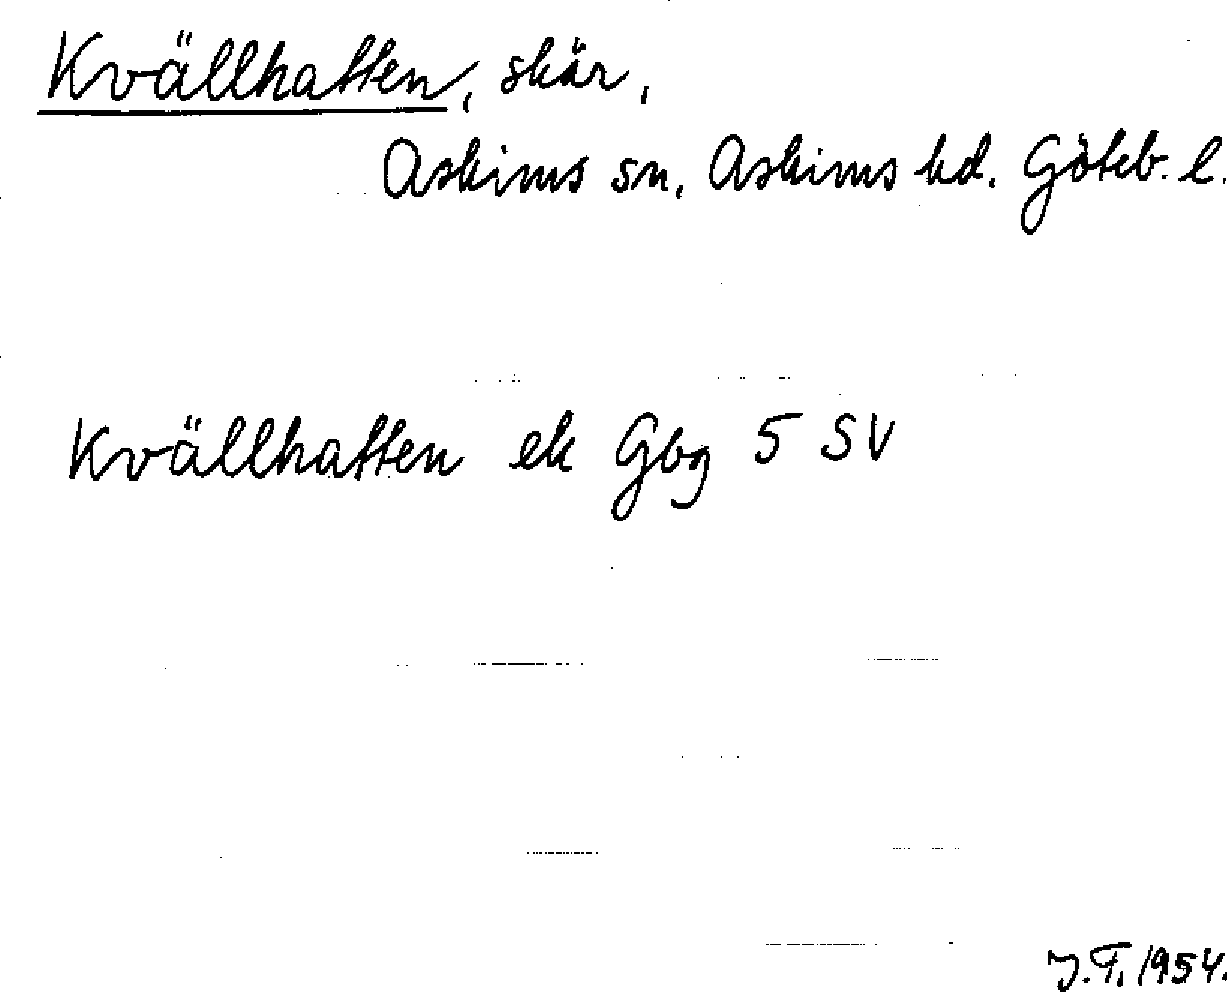 Kvällhatten, skär,
Askims sn, Askims hd. Göteb. l.
Kvällhatten ek Gbg 5 SV
J.T. 1954.